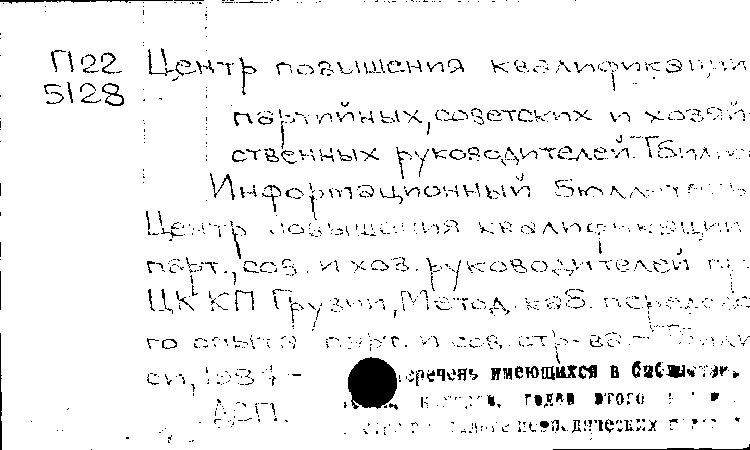 П22 Центр повышения квалификации
5128
партийных, советских и хозяй-
ственных руководителей. Тбилиси
Информационный бюллетень
Центр повышения квалификации
парт., сов. и хоз. руководителей при
ЦК КП Грузии, Метод. каб. передово-
го опыта парт. и сов. стр-ва. - Тбили-
си, 198 -
ДСП.
перечень имеющихся в библиотеке
номеров, годов этого
периодических